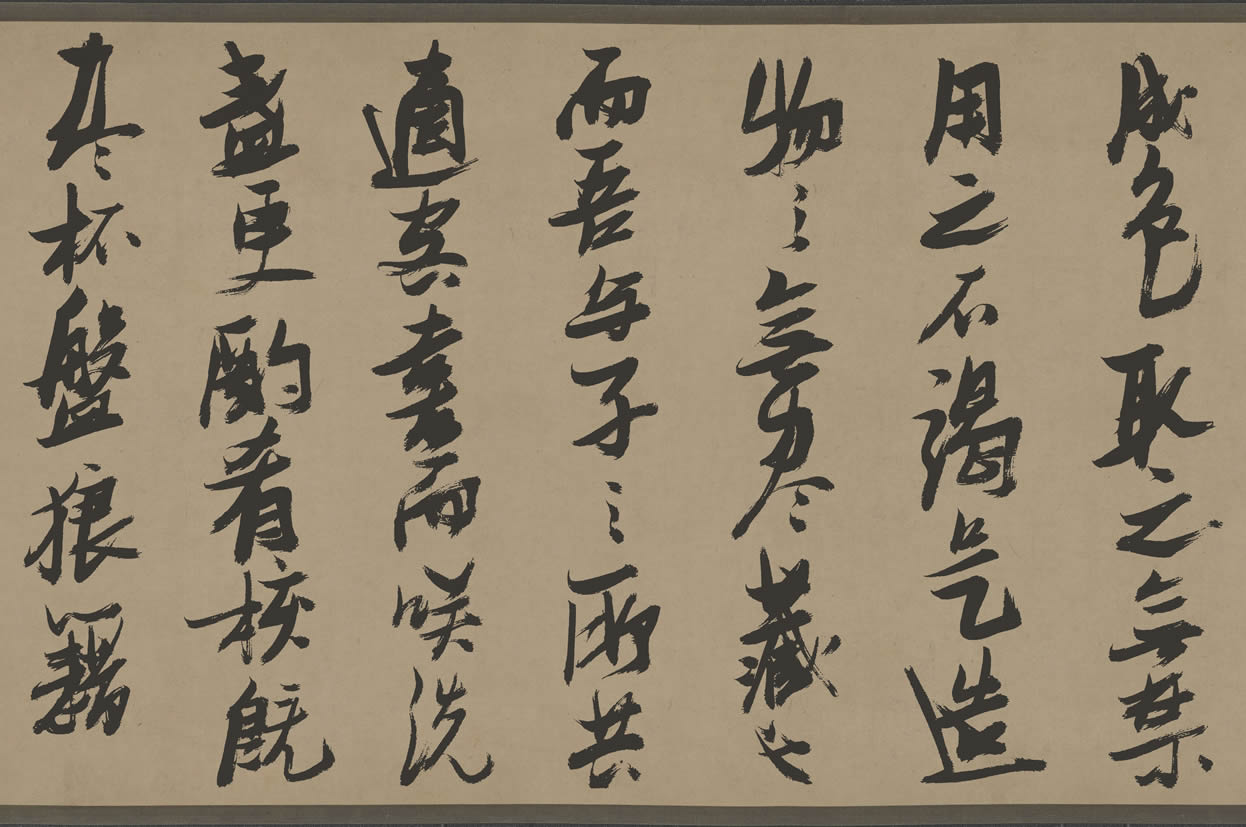 成色取之無禁
用之不竭是造
物之無盡藏也
而吾与子之所共
適客喜而咲洗
盞更酌肴核既
盡杯盤狼籍